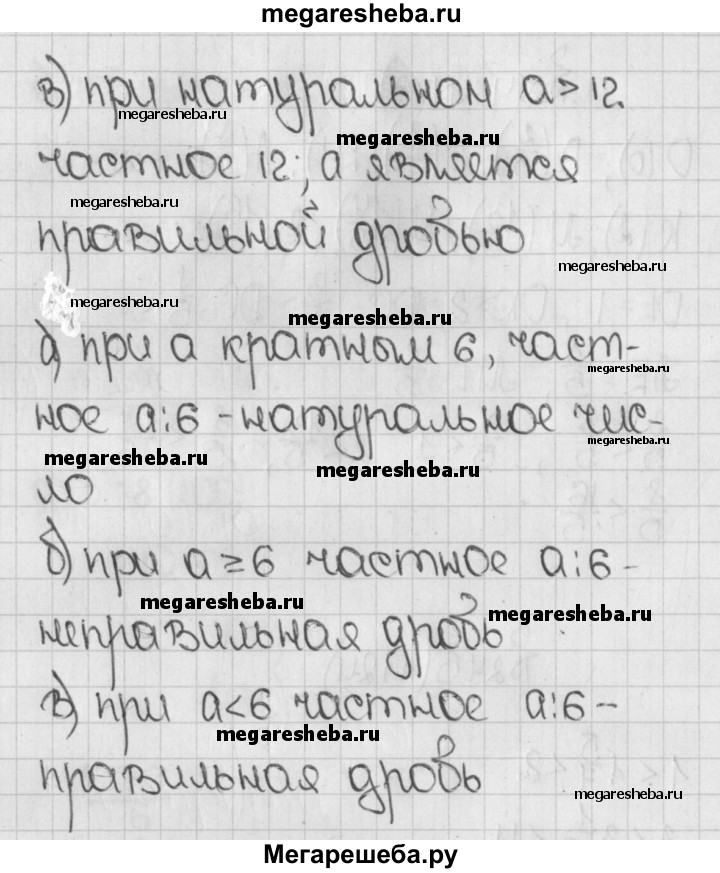 megaresheba.ru
в) при натуральном a > 12.
megaresheba.ru
megaresheba.ru
частное 12 : a является
megaresheba.ru
правильной дробью
megaresheba.ru
megaresheba.ru
megaresheba.ru
а) при a кратным 6, част-
megaresheba.ru
ное a : 6 - натуральное чис-
megaresheba.ru
megaresheba.ru
megaresheba.ru
ло
б) при a ≥ 6 частное a : 6 -
megaresheba.ru
megaresheba.ru
megaresheba.ru
неправильная дробь
в) при a < 6 частное a : 6 -
megaresheba.ru
правильная дробь
megaresheba.ru
Мегарешеба.ру